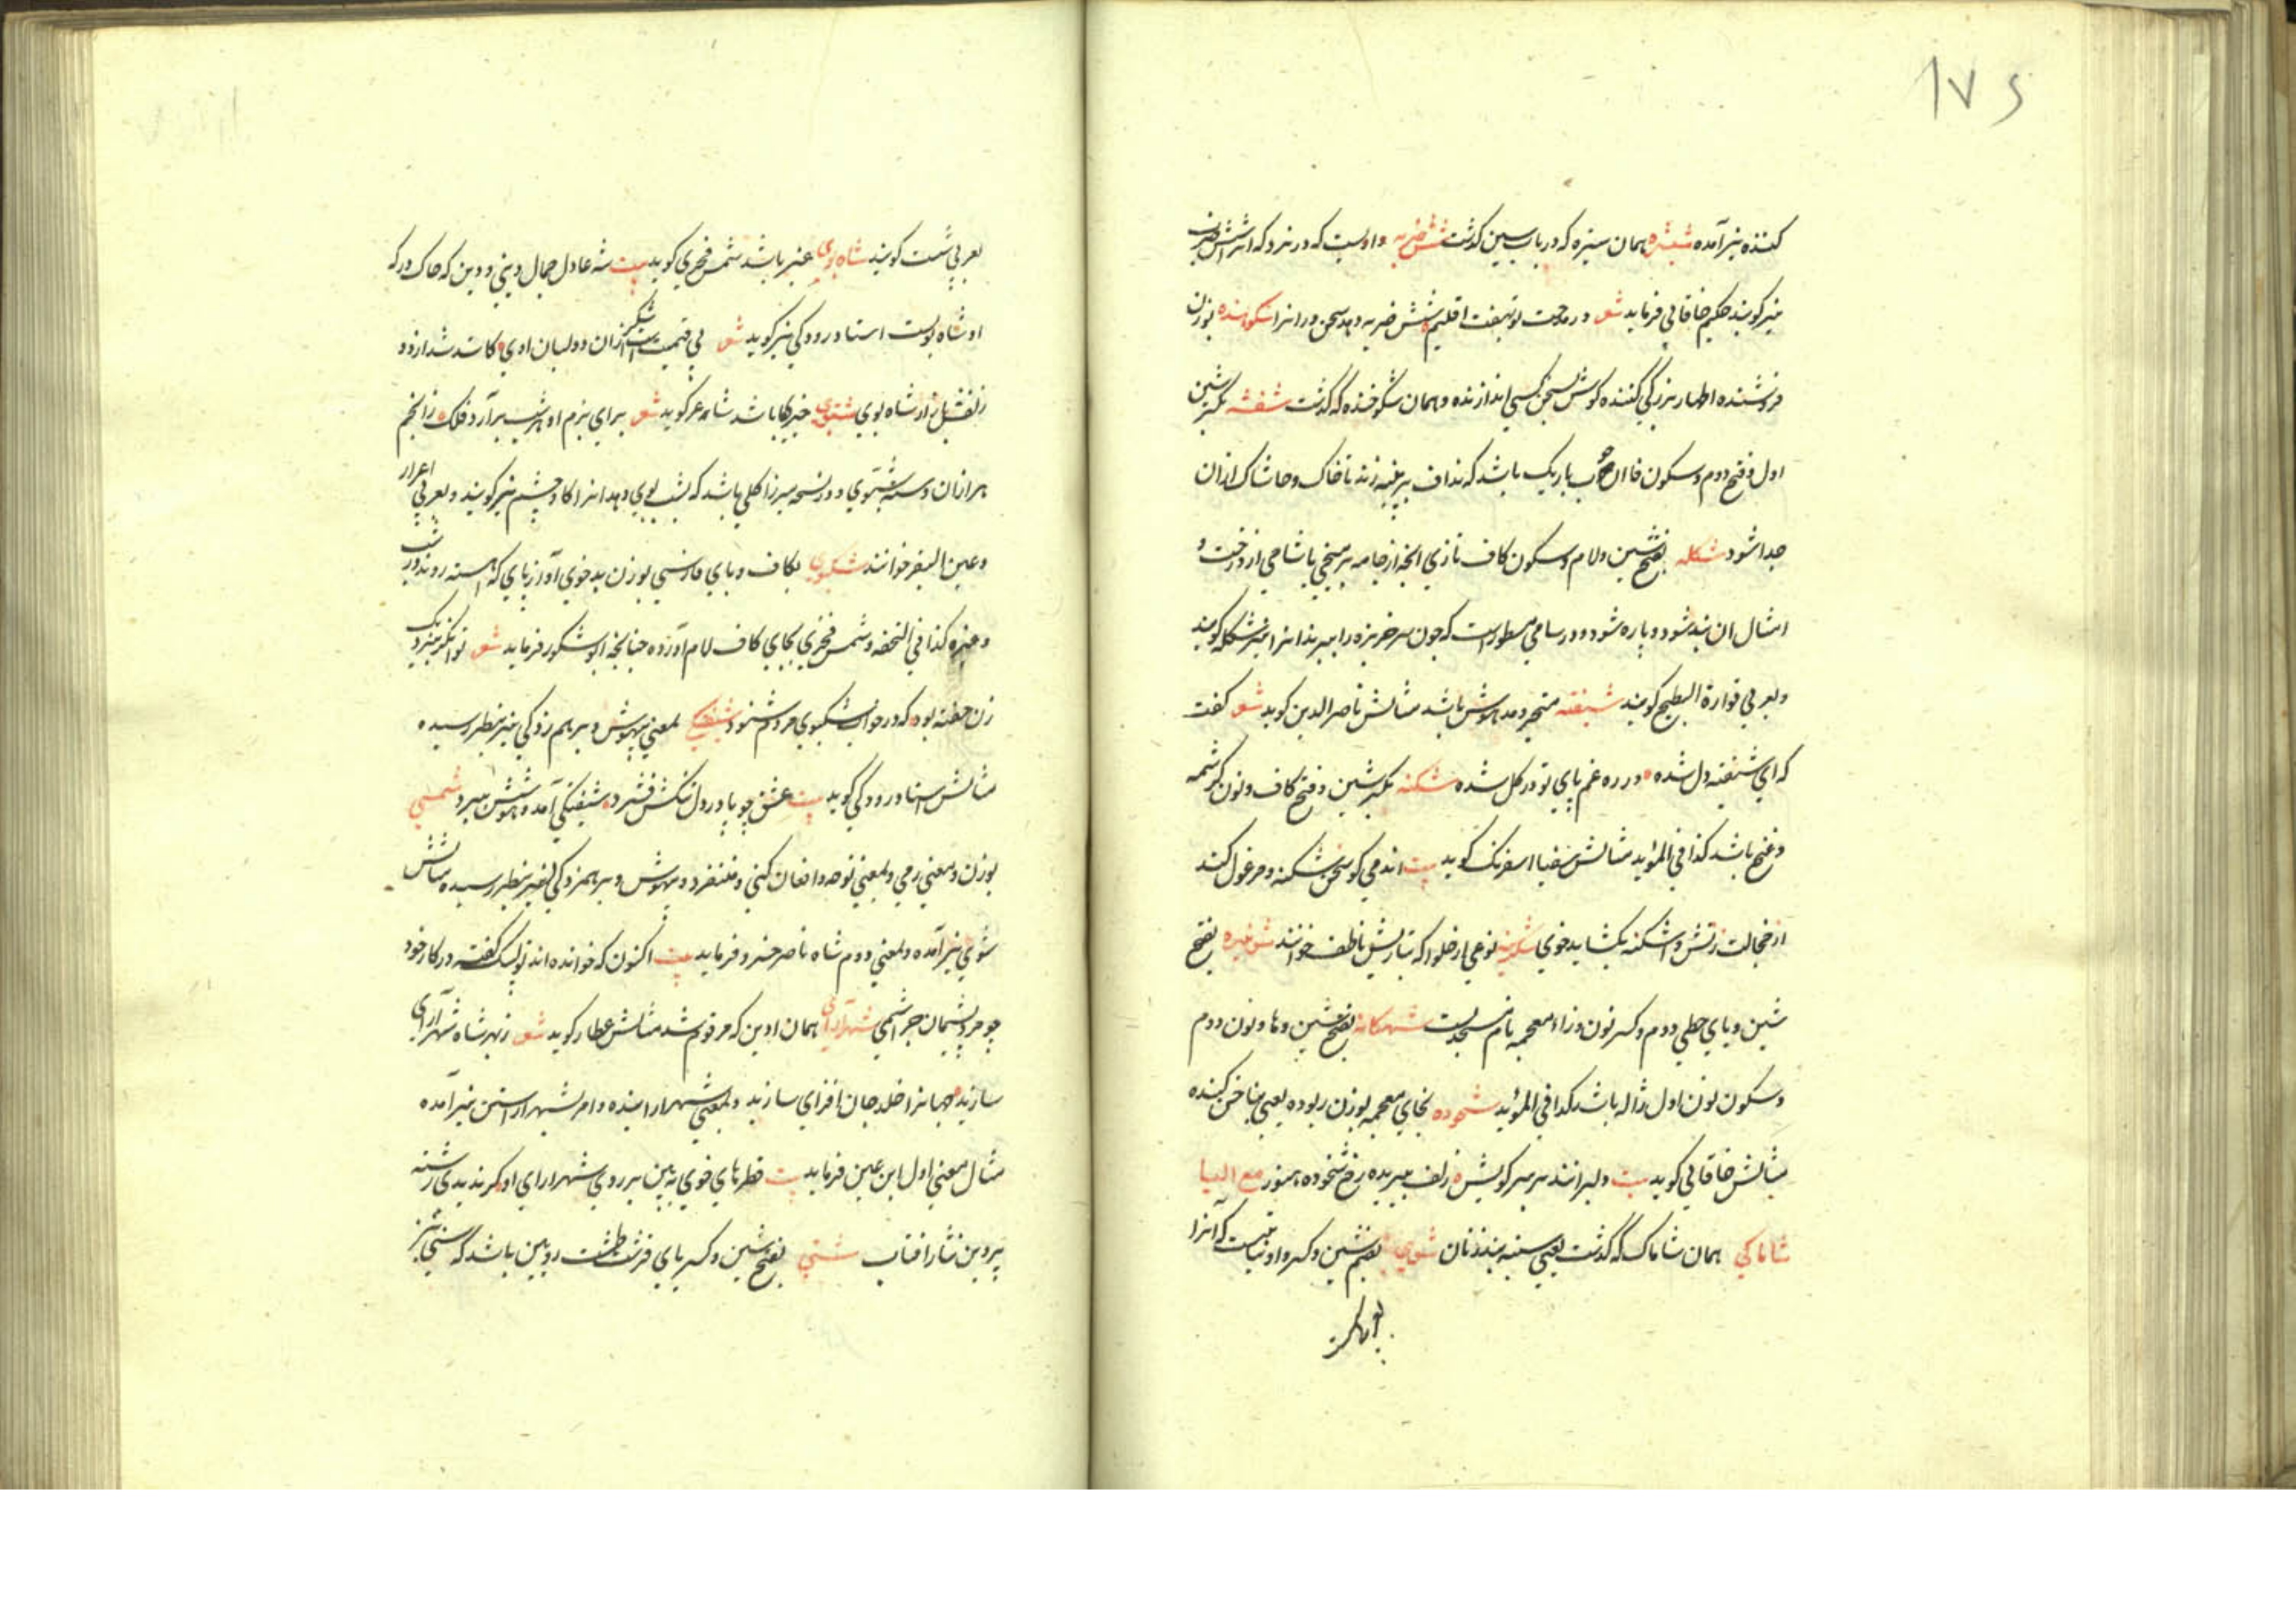 ۱۷۶
کننده نیز آمده شیشره همان سیزه که در باب سین کذشت شش ضربه داویست که در نرد که انرا شش ضرب
نیز کویند حکیم خاقانی فرماید شعر در مدحت تو بهفت اقلیم شش ضربه دهد سخن وران را شکوهنده بوزن
فروشنده اظهار بزرکی کننده کوش بسخن کسی اندازنده و همان شکوخنده که کذشت شفشه بکسر شین
اول و فتح دوم و سکون فا ان چوب باریک باشد که نداف بر پنبه زند تا خاک و خاشاک از ان
جدا شود شکله بفتح شین و لام و سکون کاف تازی انچه از جامه بر میخی یا شاخی از درخت و
امثال ان بند شود و پاره شود و در سامی مسطورست که چون سر خربزه را ببرند انرا نیز شکله کویند
و بعربی قوارة البطیخ کویند شیفته متحیر و مدهوش باشد مثالش ناصر الدین کوید شعر کفت
که ای شیفته دل شده در ره غم پای تو در کل شده شکنه بکسر شین و فتح کاف و نون کرشمه
و غنج باشد کذا فی المؤید مثالش ضیا اسفرنک کوید بیت اندمی کو سخن شکنه و مرغول کند
از خجالت زتش شکنه بکشاید خوی شکرینه نوعی از حلوا که بتازیش ناطف خوانند شونیزه بفتح
شین و یای حطی دوم و کسر نون و زاء معجمه نام مسجدیست شهنکانه بفتح شین و ها و نون دوم
و سکون نون اول ژاله باشد کذا فی المؤید شخوده بخای معجمه بوزن ربوده یعنی بناخن کنده
مثالش خاقانی کوید بیت دلبرانند بر سر کویش زلف ببریده رخ شخوده هنوز مع الیا
شاماکی همان شاماک که کذشت یعنی سینه بند زنان شوی بضم شین و کسر واو نباتیست که آنرا
بعربی شبت کویند شاه بوی عنبر باشد شمس فخری کوید بیت شه عادل جمال دینی و دین که خاک درکه
او شاه بویست استاد رودکی نیز کوید شعر بی قیمتست شکر از ان دو لبان اوی کاسد شد از دو
زلفش بازار شاه بوی شبوی خیرکا باشد شاعر کوید شعر برای بزم او هر شب بر آرد فلک زانجم
هزاران دسته شبوی و در نسخه میرزا کلی باشد که بشب بوی دهد انرا کاو چشم نیز کویند و بعربی اعرار
و عین البقر خوانند شکبوی بکاف و بای فارسی بوزن بدخوی آواز پای که اهسته روند در شب
و غیره کذا فی التحفه و شمس فخری بجای کاف لام آورده چنانچه ابوشکور فرماید شعر توانکر بنزدیک
زن خفته بود که در خواب شکبوی مردم شنود شیفتکی بمعنی بیهوشی و برهم زدکی نیز بنظر رسیده
مثالش استاد رودکی کوید بیت عشق چو پا در دل تنکش فشرد شیفتکی آمد و هوشش ببرد شمی
بوزن و معنی رمی و بمعنی نوحه و افغان کنی و متنفرد و بیهوش و برهمزدکی نیز بنظر رسیده مثالش
شوی نیز آمده و بمعنی دوم شاه ناصر خسرو فرماید بیت اکنون که خوانده اند تو لبیک کفته در کار خود
چو مرد پشیمان چرا شمی شهر آرای همان اودین که مرقوم شد مثالش عطار کوید شعر زبهر شاه شهر آرای
سازید جهان را خلد جان افزای سازید و بمعنی شهر اراینده و امر بشهر اراستن نیز آمده
مثال معنی اول ابن عین فرماید بیت قطرهای خوی به بین بر روی شهر ارای او کر ندیدی رشته
پروین نثار افتاب شتی بفتح شین و کسر یای قرشت طشت رویین باشد که سنی نیز